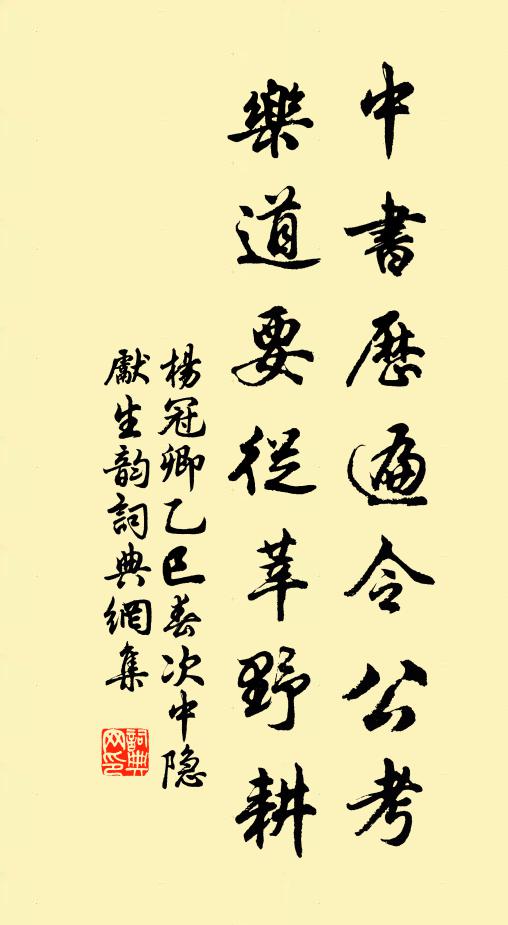 中書歷遍令公考
樂道要從莘野耕
楊冠卿乙巳春次中隐
獻生韵詞典網集
詞典網印